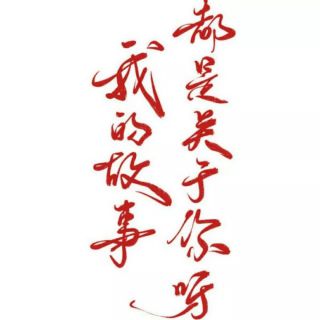 我的故事
都是关于你呀